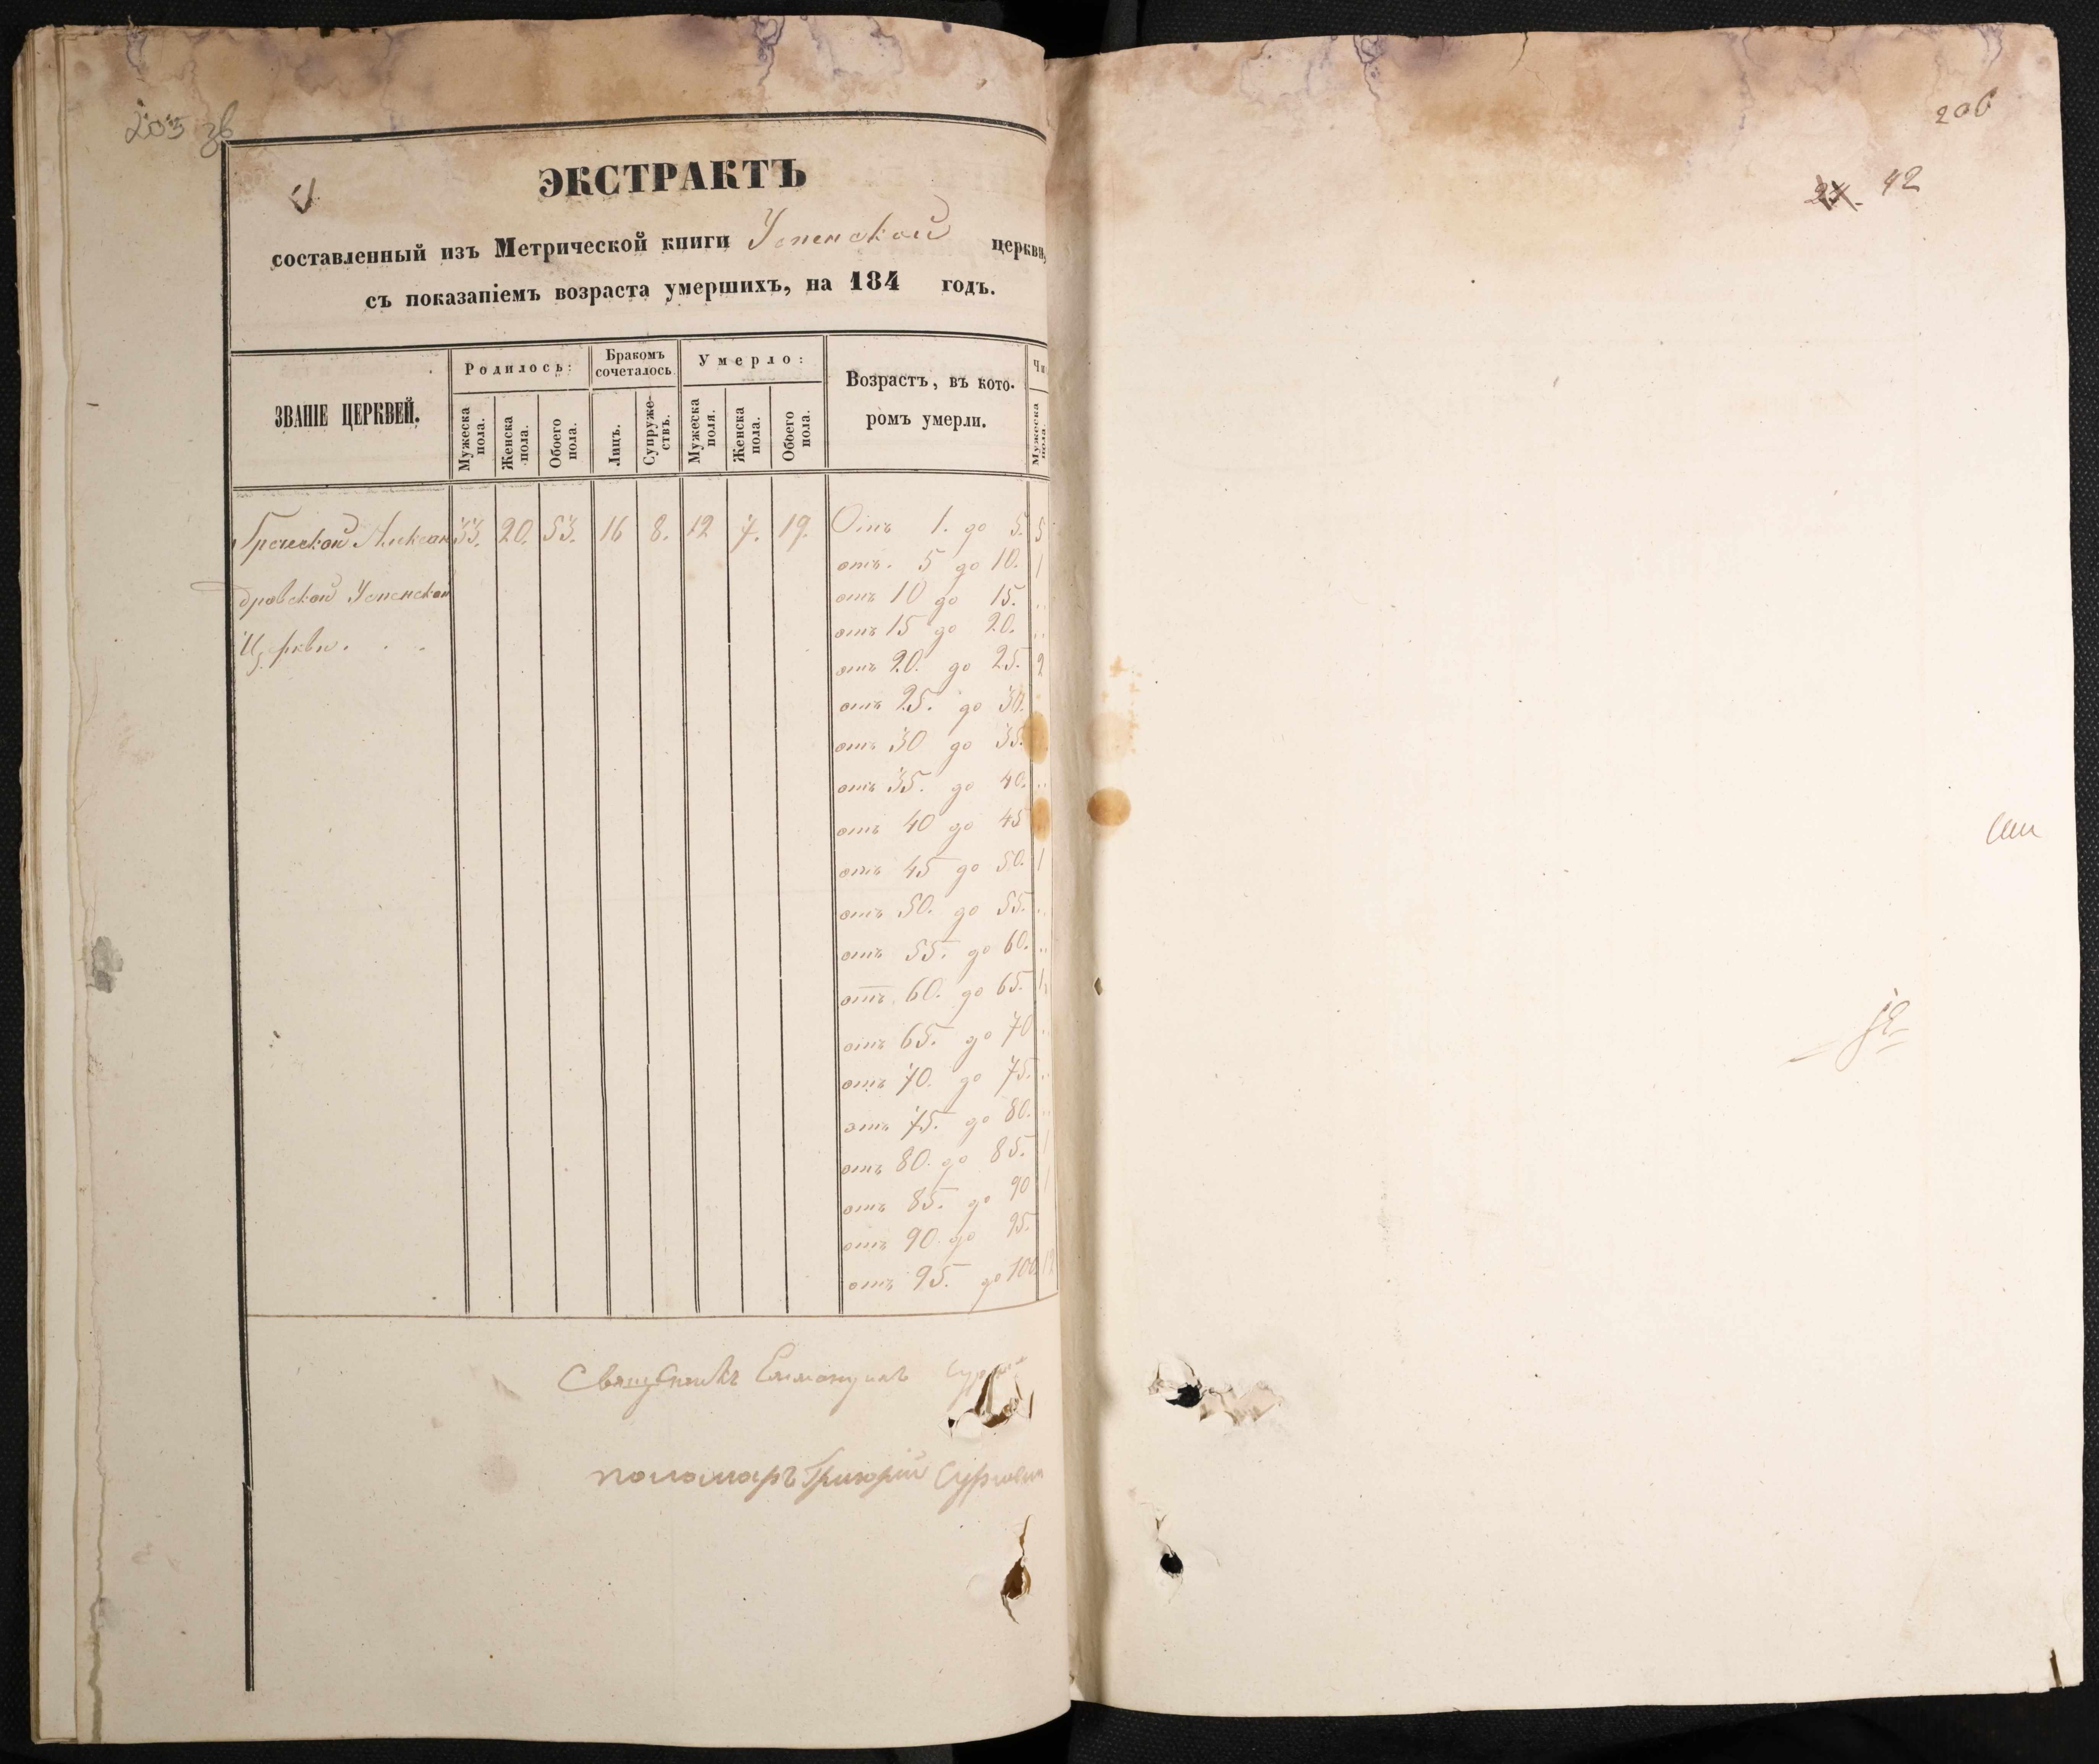 205 зв
ЭКСТРАКТЪ
составленный изъ Метрической книги Успенской церкви,
съ показаніемъ возраста умершихъ, на 184 годъ.
ЗВАНІЕ ЦЕРКВЕЙ.
Родилось:
Бракомъ сочеталось
Умерло:
Возрастъ, въ кото-
ромъ умерли.
Мужеска пола.
Женска пола.
Обоего пола.
Лицъ.
Супруже-ствъ.
Мужеска пола.
Женска пола.
Обоего пола.
Мужеска пола.
Греческой Александ 33. 20. 53. 16 8. 12 7. 19. Отъ 1. до 5. 5
отъ. 5 до 10. 1
дровской Успенской отъ 10 до 15. ..
отъ 15 до 20. ..
Церкви. . . отъ 20. до 25. 2
отъ 25. до 30.
отъ 30 до 35.
отъ 35. до 40. ..
отъ 40 до 45
отъ 45 до 50. 1
отъ 50. до 55. ..
отъ 55. до 60. ..
отъ 60. до 65. 1
отъ 65. до 70 ..
отъ 70. до 75. ..
отъ 75. до 80. ..
отъ 80. до 85. 1
отъ 85. до 90 1
отъ 90. до 95.
отъ 95. до 100 12
Священникъ Еммануилъ
пономарь Григорій
206
24. 42